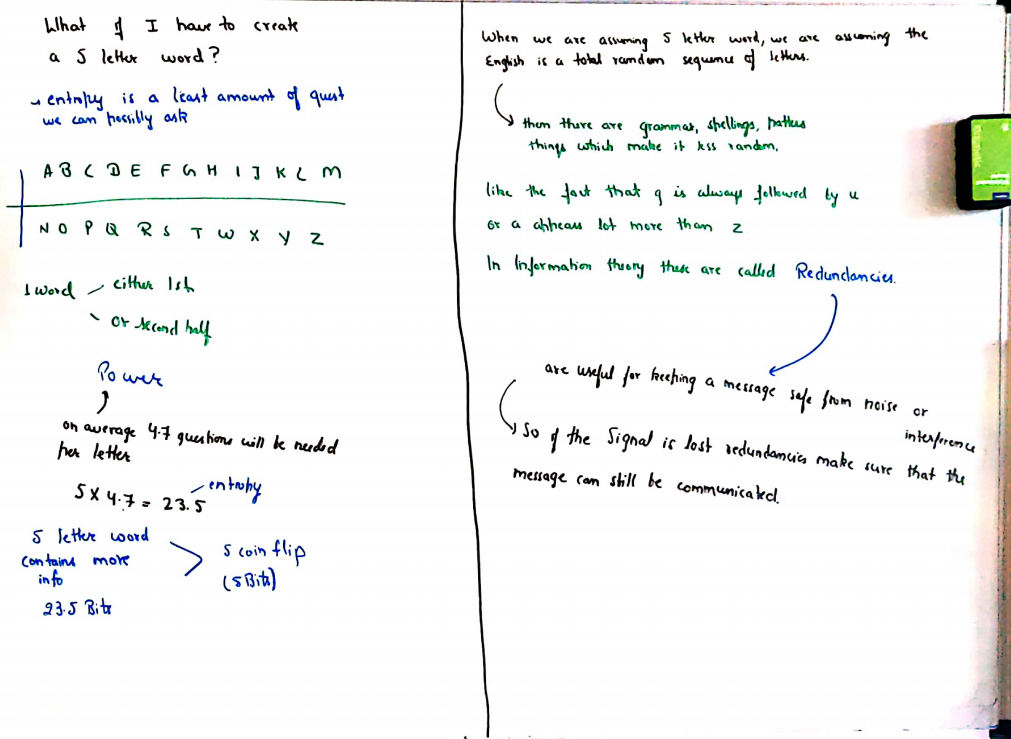 What if I have to create
a 5 letter word?
entropy is a least amount of quest
we can possibly ask
A B C D E F G H I J K L M
N O P Q R S T W X Y Z
1 word either 1st
or second half
Power
on average 4.7 questions will be needed
per letter
5 x 4.7 = 23.5 entropy
5 letter word
contains more
info
23.5 Bits
> 5 coin flip
(5 Bits)
When we are assuming 5 letter word, we are assuming the
English is a total random sequence of letters.
then there are grammar, spellings,
things which make it less random.
like the fact that q is always followed by u
or a appears lot more than z
In Information theory these are called Redundancies.
are useful for keeping a message safe from noise or
interference
So if the Signal is lost redundancies make sure that the
message can still be communicated.